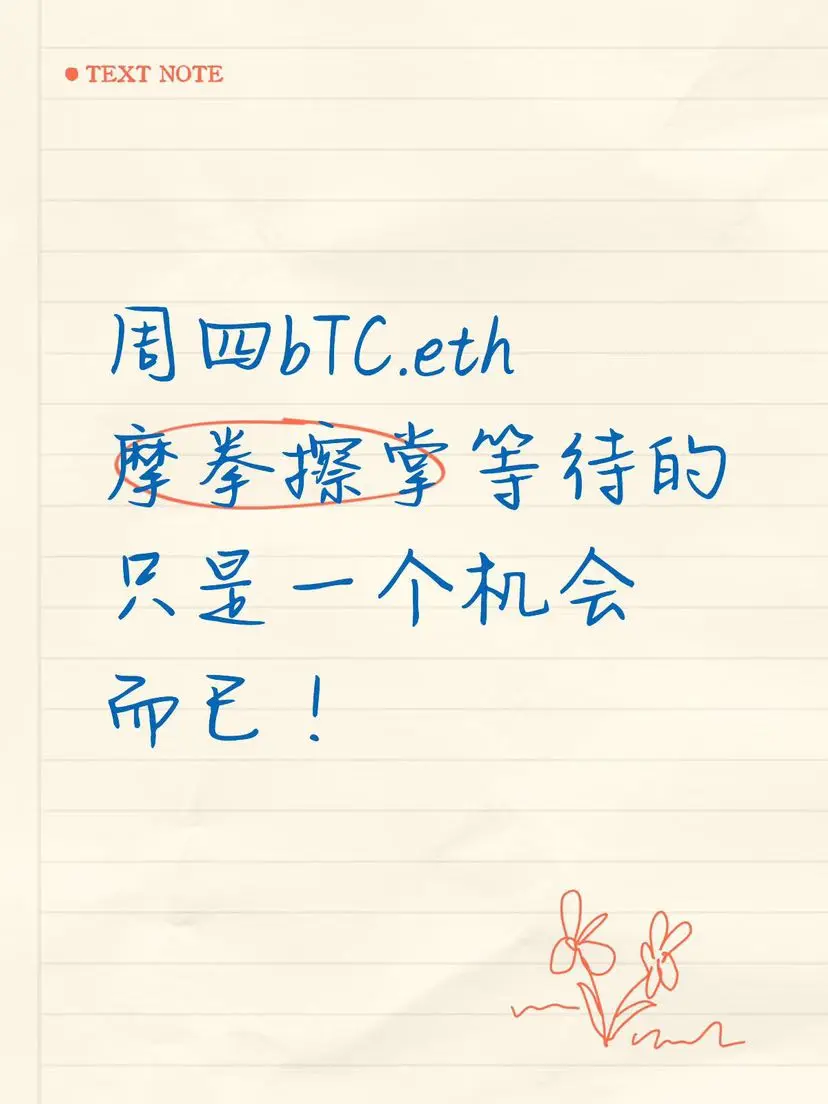 TEXT NOTE
周四bTC.eth
摩拳擦掌等待的
只是一个机会
而已！